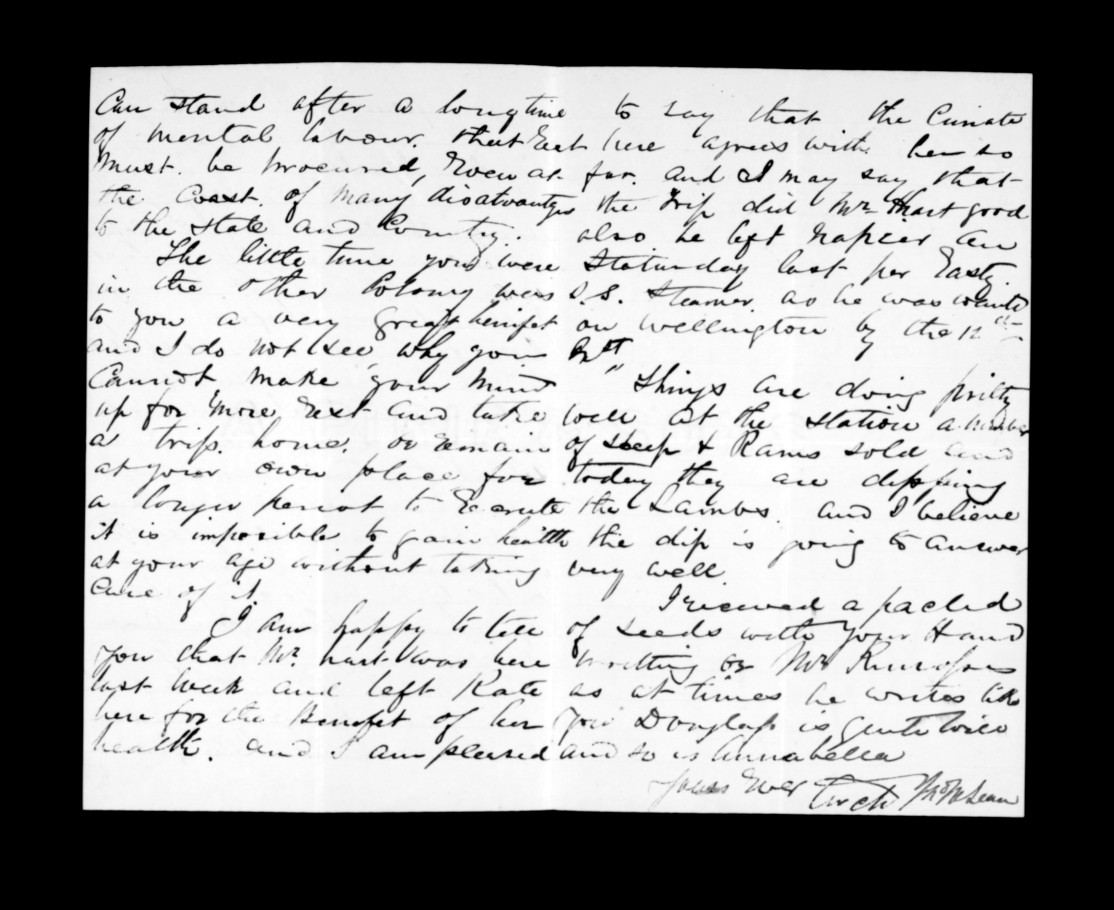 Can stand after a long time
of mental labour. that Rest
must be procured, Even at
the Coast of many disatvantges
to the state and Country.
The little time you were
in the other Colony was
to you a very great benifet
and I do not see why you
Cannot make your mind
up for more rest and take
a trip home. or remain
at your own place for
a longer periot to
it is impossible to gain health
at your age without taking
Care of it.
I am happy to tell
you that Mr. hart was here
last week and left Kate
here for the Benefet of her
health. and I am pleased
to say that the Cimate
here agrees with her so
far. and I may say that
the trip did Mr Hart good
also he left Napier on
Staturday last per
S. S. Steamer as he was wanted
on Wellington by the 12th

Things are doing pritty
well at the station a number
of sheep & Rams sold and
today they are dipping
the Lambs. and I believe
the dip is going to answer
very well.
I received a packed
of seeds with your Hand
writting or Mr
as at times he writes like
you Douglas is quite well
and so is Annabella
Yours Ever Arch McLean